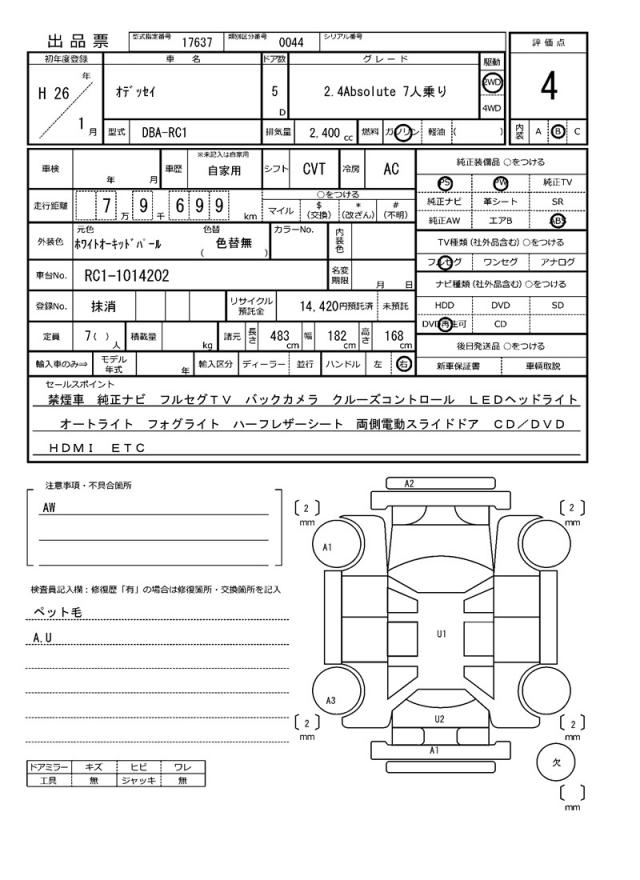 出品票 型式指定番号 17637 類別区分番号 0044 シリアル番号
評価点
4
内装 A B C
初年度登録 車名 ドア数 グレード 駆動
H 26 年 1 月 オデッセイ 5 D 2.4Absolute 7人乗り 2WD 4WD
型式 DBA-RC1 排気量 2,400 cc 燃料 ガソリン 軽油 ( )
車検 年 月 車歴 ※未記入は自家用 自家用 シフト CVT 冷房 AC
走行距離 7 万 9 千 6 9 9 km ○をつける マイル $ (交換) * (改ざん) # (不明)
外装色 元色 ホワイトオーキッドパール 色替 ( 色替無 ) カラーNo. 内装色
車台No. RC1-1014202 名変期限 月 日
登録No. 抹消 リサイクル預託金 14,420円預託済 未預託
定員 7( )人 積載量 kg 諸元 長さ 483 cm 幅 182 cm 高さ 168 cm
輸入車のみ⇒ モデル年式 年 輸入区分 ディーラー 並行 ハンドル 左 右
純正装備品 ○をつける
PS PW 純正TV
純正ナビ 革シート SR
純正AW エアB ABS
TV種類(社外品含む)○をつける
フルセグ ワンセグ アナログ
ナビ種類(社外品含む)○をつける
HDD DVD SD
DVD再生可 CD
後日発送品 ○をつける
新車保証書 車輌取説
セールスポイント
禁煙車 純正ナビ フルセグTV バックカメラ クルーズコントロール LEDヘッドライト
オートライト フォグライト ハーフレザーシート 両側電動スライドドア CD/DVD
HDMI ETC
注意事項・不具合箇所
AW
検査員記入欄:修復歴「有」の場合は修復箇所・交換箇所を記入
ペット毛
A.U
ドアミラー キズ ヒビ ワレ
工具 無 ジャッキ 無
A2
[ 2 ] mm [ 2 ] mm
A1
U1
A3
U2
[ 2 ] mm [ 2 ] mm
A1
欠
[ ] mm